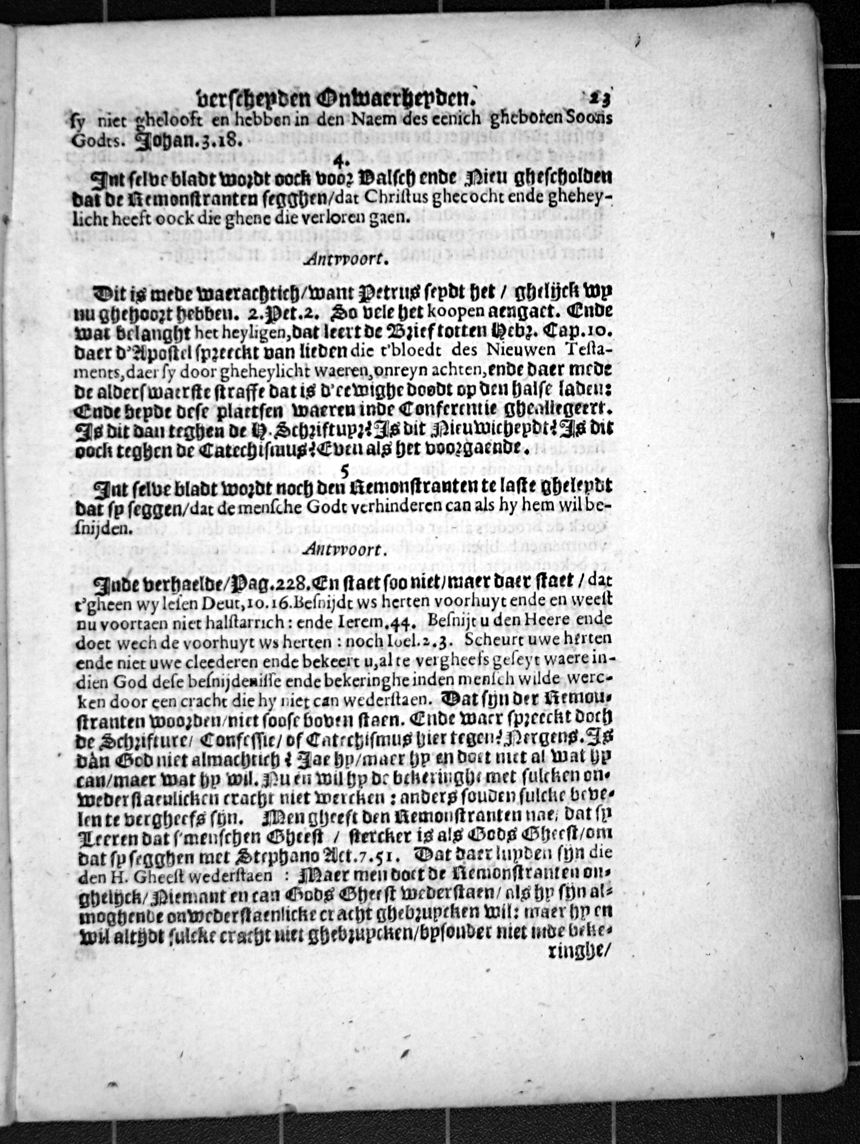 verscheyden Onwaerheyden. 23
sy niet ghelooft en hebben in den Naem des eenich gheboren Soons
Godts. Johan.3.18.
4.
Int selve bladt wordt oock voor Valsch ende Nieu ghescholden
dat de Remonstranten segghen/dat Christus ghecocht ende ghehey-
licht heeft oock die ghene die verloren gaen.
Antvvoort.
Dit is mede waerachtich/want Petrus seydt het / ghelijck wy
nu ghehoort hebben. 2.Pet.2. So vele het koopen aengaet. Ende
wat belanght het heyligen,dat leert de Brief totten Hebr. Cap.10.
daer d'Apostel spreeckt van lieden die t'bloedt des Nieuwen Testa-
ments,daer sy door gheheylicht waeren,onreyn achten,ende daer mede
de alderswaerste straffe dat is d'eewighe doodt op den halse laden:
Ende beyde dese plaetsen waeren inde Conferentie gheallegeert.
Is dit dan teghen de H. Schriftuyr? Is dit Nieuwicheydt? Is dit
oock teghen de Catechismus? Even als het voorgaende.
5
Int selve bladt wordt noch den Remonstranten te laste gheleydt
dat sy seggen/dat de mensche Godt verhinderen can als hy hem wil be-
snijden.
Antvvoort.
Inde verhaelde/Pag.228.En staet soo niet/maer daer staet / dat
t'gheen wy lesen Deut,10.16.Besnijdt ws herten voorhuyt ende en weest
nu voortaen niet halstarrich : ende Ierem.44. Besnijt u den Heere ende
doet wech de voorhuyt ws herten : noch Ioel.2.3. Scheurt uwe herten
ende niet uwe cleederen ende bekeert u,al te vergheefs geseyt waere in-
dien God dese besnijdenisse ende bekeringhe inden mensch wilde werc-
ken door een cracht die hy niet can wederstaen. Dat sijn der Remon-
stranten woorden/niet soose boven staen. Ende waer spreeckt doch
de Schrifture/ Confessie/ of Catechismus hier tegen? Nergens. Is
dan God niet almachtich ? Jae hy/maer hy en doet niet al wat hy
can/maer wat hy wil. Nu en wil hy de bekeringhe met sulcken on-
wederstaenlicken cracht niet wercken : anders souden sulcke beve-
len te vergheefs sijn. Men gheeft den Remonstranten nae, dat sy
Leeren dat s'menschen Gheest / stercker is als Gods Gheest/om
dat sy segghen met Stephano Act.7.51. Dat daer luyden sijn die
den H. Gheest wederstaen : Maer men doet de Remonstranten on-
ghelijck/ Niemant en can Gods Gheest wederstaen/ als hy sijn al-
moghende onwederstaenlicke cracht ghebruycken wil: maer hy en
wil altijdt sulcke cracht niet ghebruycken/bysonder niet inde beke-
ringhe/